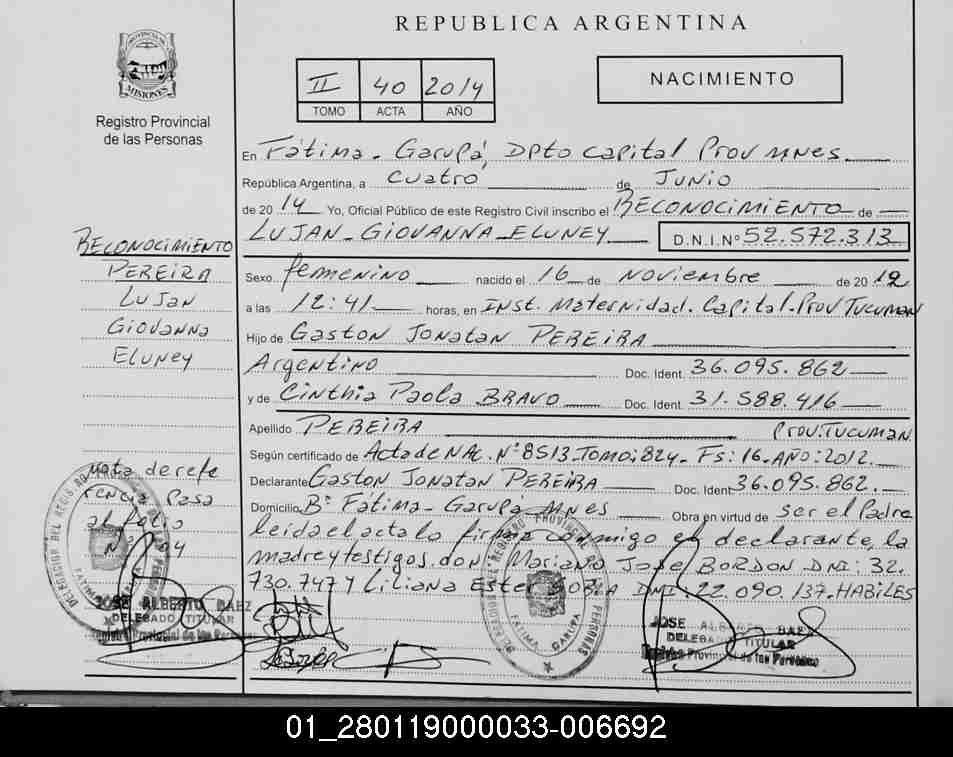 REPUBLICA ARGENTINA
PROVINCIA DE
MISIONES
Registro Provincial
de las Personas
II 40 2014
TOMO ACTA AÑO
NACIMIENTO
En Fátima - Garupá, Dpto Capital Prov Mnes
República Argentina, a cuatro de JUNIO
de 2014 Yo, Oficial Público de este Registro Civil inscribo el RECONOCIMIENTO de
LUJAN - GIOVANNA ELUNEY D.N.I.Nº 52.572.313
Sexo femenino nacido el 16 de Noviembre de 2012
a las 12:41 horas, en Inst. Maternidad. Capital - Prov Tucuman
Hijo de Gaston Jonatan PEREIRA
Argentino Doc. Ident. 36.095.862
y de Cinthia Paola BRAVO Doc. Ident. 31.588.416
Apellido PEREIRA Prov. Tucuman
Según certificado de Acta de NAC. Nº 8513. Tomo: 824 - Fs: 16 - Año: 2012.
Declarante Gaston Jonatan PEREIRA Doc. Ident 36.095.862.
Domicilio Bº Fátima - Garupá Mnes Obra en virtud de ser el Padre
leida el acta la firma conmigo el declarante, la
madre y testigos, don Mariano Jose BORDON DNI: 32.
730.747 y Liliana Ester DNI 22.090.137. HABILES
RECONOCIMIENTO
PEREIRA
Lujan
Giovanna
Eluney
nota de refe
rencia Pasa
al folio
JOSE ALBERTO BAEZ
DELEGADO TITULAR
Registro Provincial de las Personas
DELEGACION DEL REGISTRO PROVINCIAL
FATIMA
DELEGACION DE REGISTRO PROVINCIAL PERSONAS
FATIMA GARUPA
JOSE ALBERTO BAEZ
DELEGADO TITULAR
Registro Provincial de las Personas
01_280119000033-006692